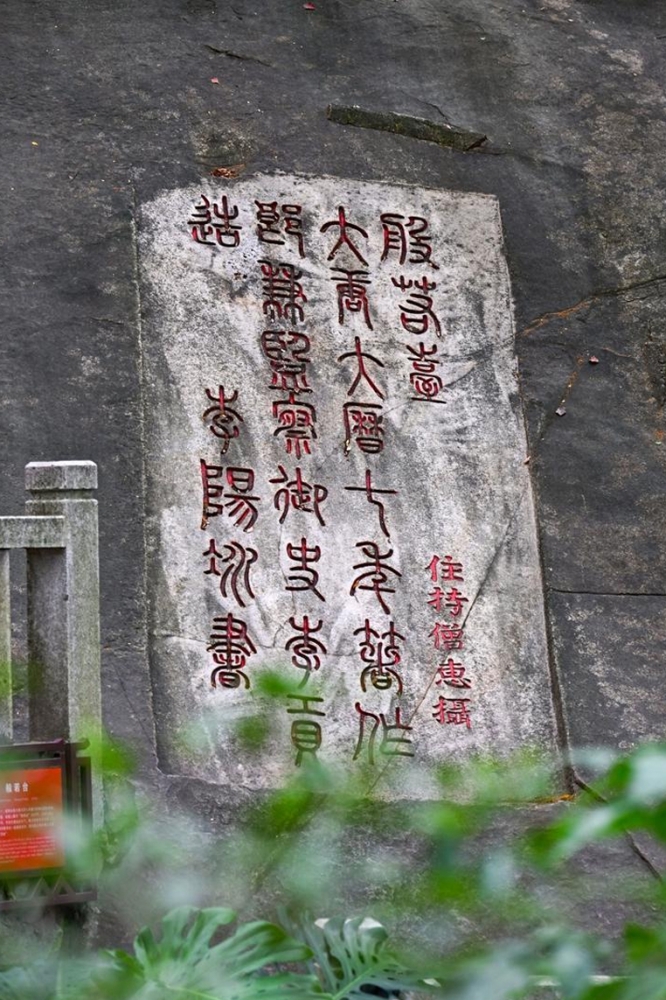 般若臺
住持僧惠攝
大唐大曆七年著作
郎兼監察御史李貢
造 李陽冰書
般若台